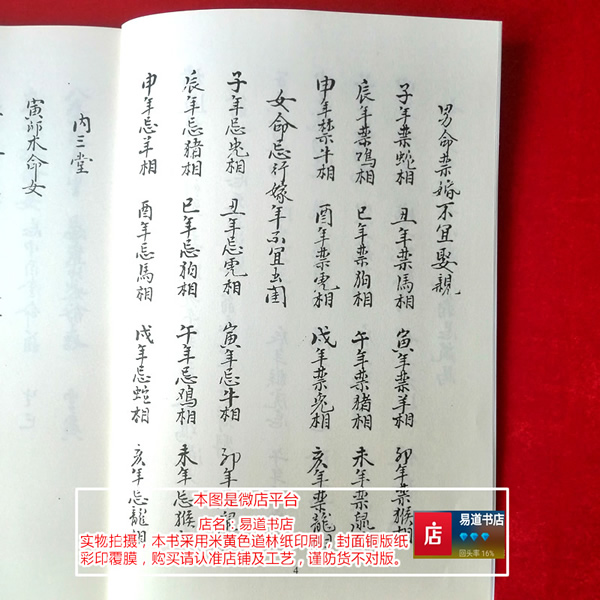 男命禁婚不宜娶親
子年禁蛇相 丑年禁馬相 寅年禁羊相 卯年禁猴相
辰年禁鴂相 巳年禁狗相 午年禁猪相 未年禁鼠
申年禁牛相 酉年禁虎相 戌年禁兔相 亥年禁龍相
女命忌行嫁年不宜出閨
子年忌兔相 丑年忌虎相 寅年忌牛相 卯年
辰年忌猪相 巳年忌狗相 午年忌鷄相 未年忌猴
申年忌羊相 酉年忌馬相 戌年忌蛇相 亥年忌龍相
内三堂
寅卯木命女
4
本图是微店平台
店名：易道书店
实物拍摄，本书采用米黄色道林纸印刷，封面铜版纸
彩印覆膜，购买请认准店铺及工艺，谨防货不对版。
店
易道书店
回头率 16%